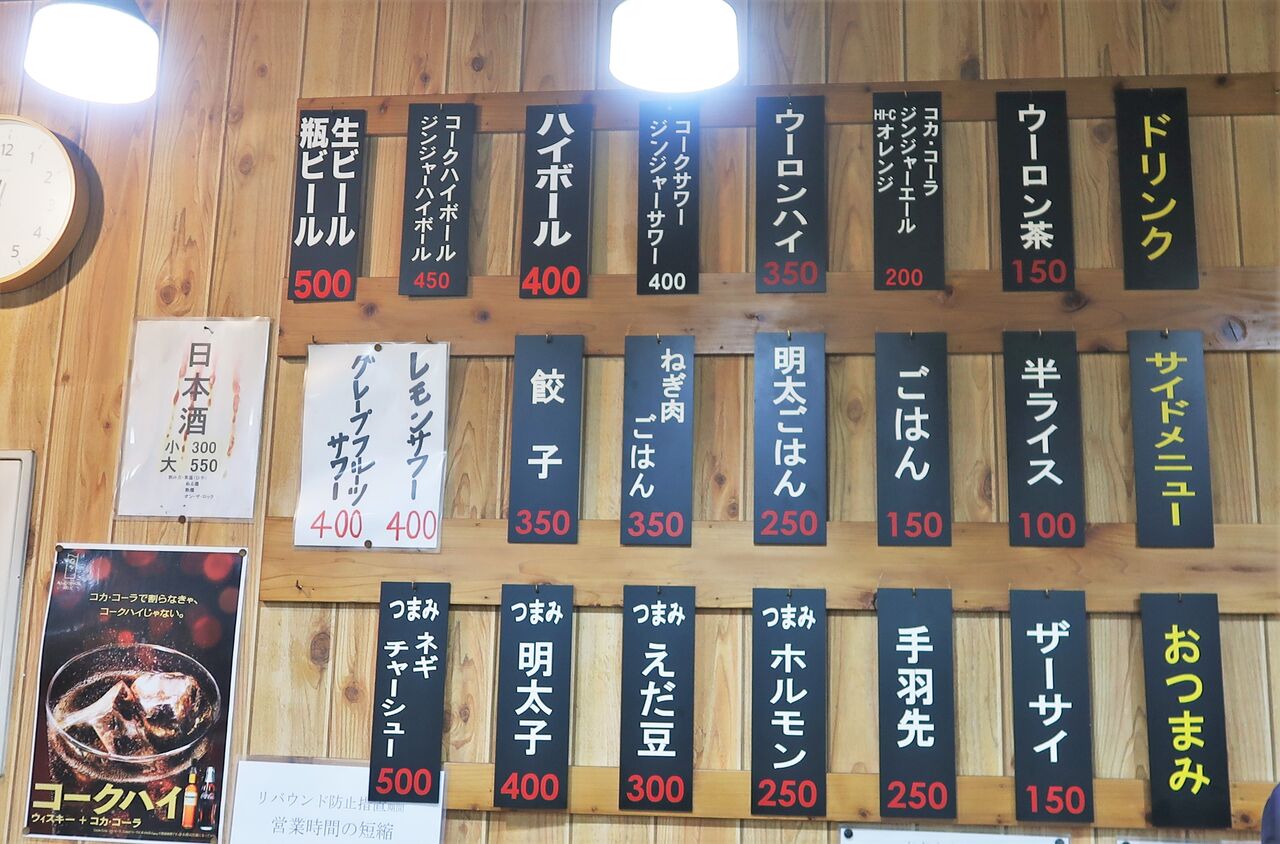 ドリンク
ウーロン茶
150
コカ・コーラ
ジンジャーエール
HI-C オレンジ
200
ウーロンハイ
350
コークサワー
ジンジャーサワー
400
ハイボール
400
コークハイボール
ジンジャーハイボール
450
生ビール
瓶ビール
500
サイドメニュー
半ライス
100
ごはん
150
明太ごはん
250
ねぎ肉
ごはん
350
餃子
350
レモンサワー
400
グレープフルーツ
サワー
400
日本酒
小 300
大 550
おつまみ
ザーサイ
150
手羽先
250
つまみ
ホルモン
250
つまみ
えだ豆
300
つまみ
明太子
400
つまみ
ネギ
チャーシュー
500
コカ・コーラで割らなきゃ、
コークハイじゃない。
コークハイ
ウィスキー + コカ・コーラ
リバウンド防止措置期間
営業時間の短縮
12
1
2
3
4
5